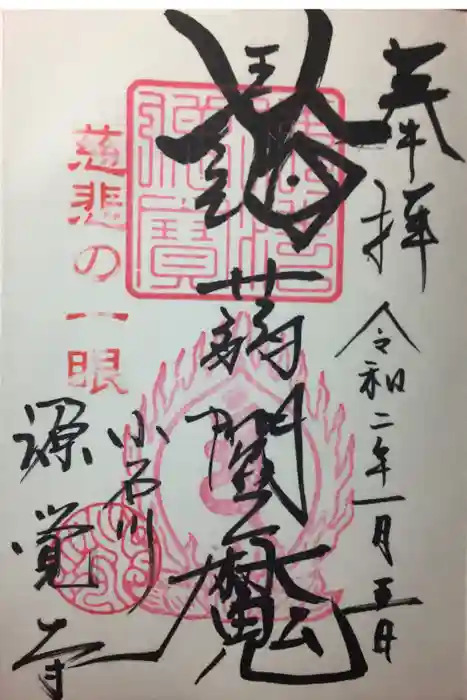 奉拝
令和二年一月五日
蒟蒻閻魔
慈悲の一眼
小石川
源覺寺